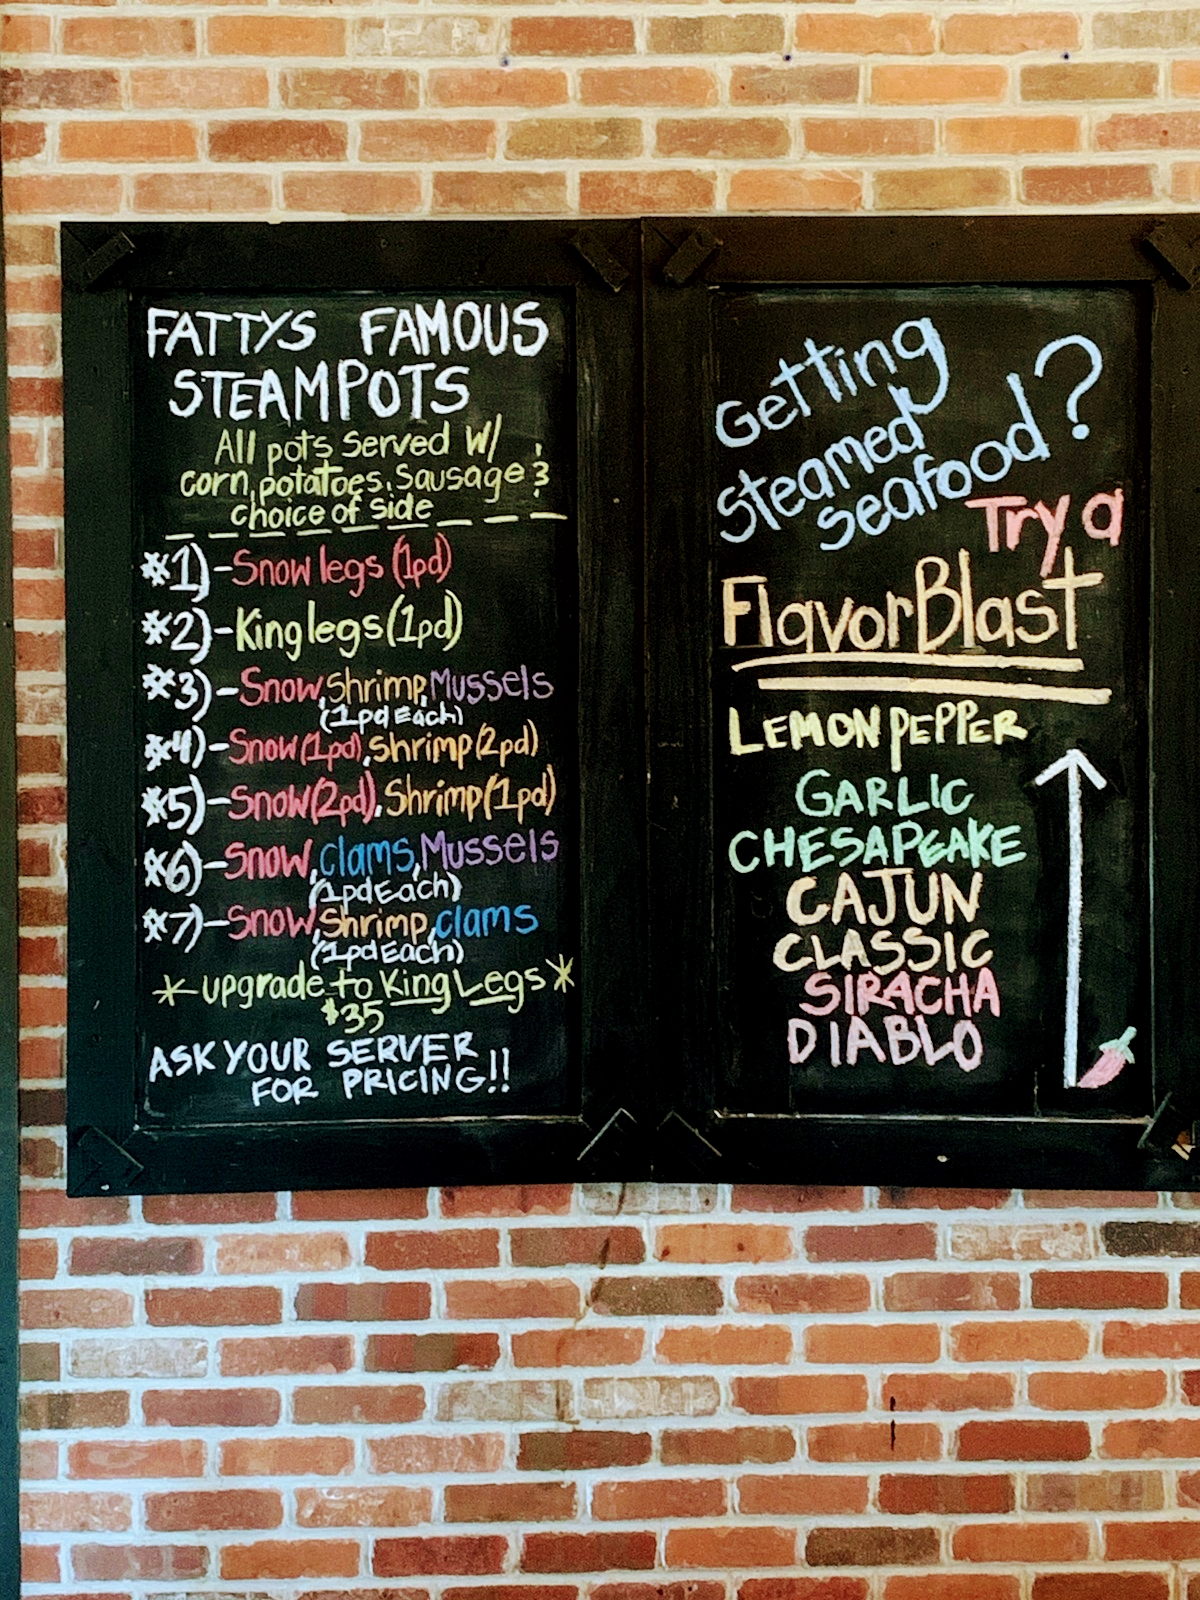 FATTYS FAMOUS
STEAMPOTS
All pots served w/
corn, potatoes, Sausage &
choice of side
#1) - Snow legs (1pd)
#2) - King legs (1pd)
#3) - Snow, Shrimp, Mussels
(1pd Each)
#4) - Snow (1pd), Shrimp (2pd)
#5) - Snow (2pd), Shrimp (1pd)
#6) - Snow, clams, Mussels
(1pd Each)
#7) - Snow, Shrimp, clams
(1pd Each)
* upgrade to King Legs *
$35
ASK YOUR SERVER
FOR PRICING!!
Getting
steamed
seafood?
Try a
FlavorBlast
LEMON PEPPER
GARLIC
CHESAPEAKE
CAJUN
CLASSIC
SIRACHA
DIABLO